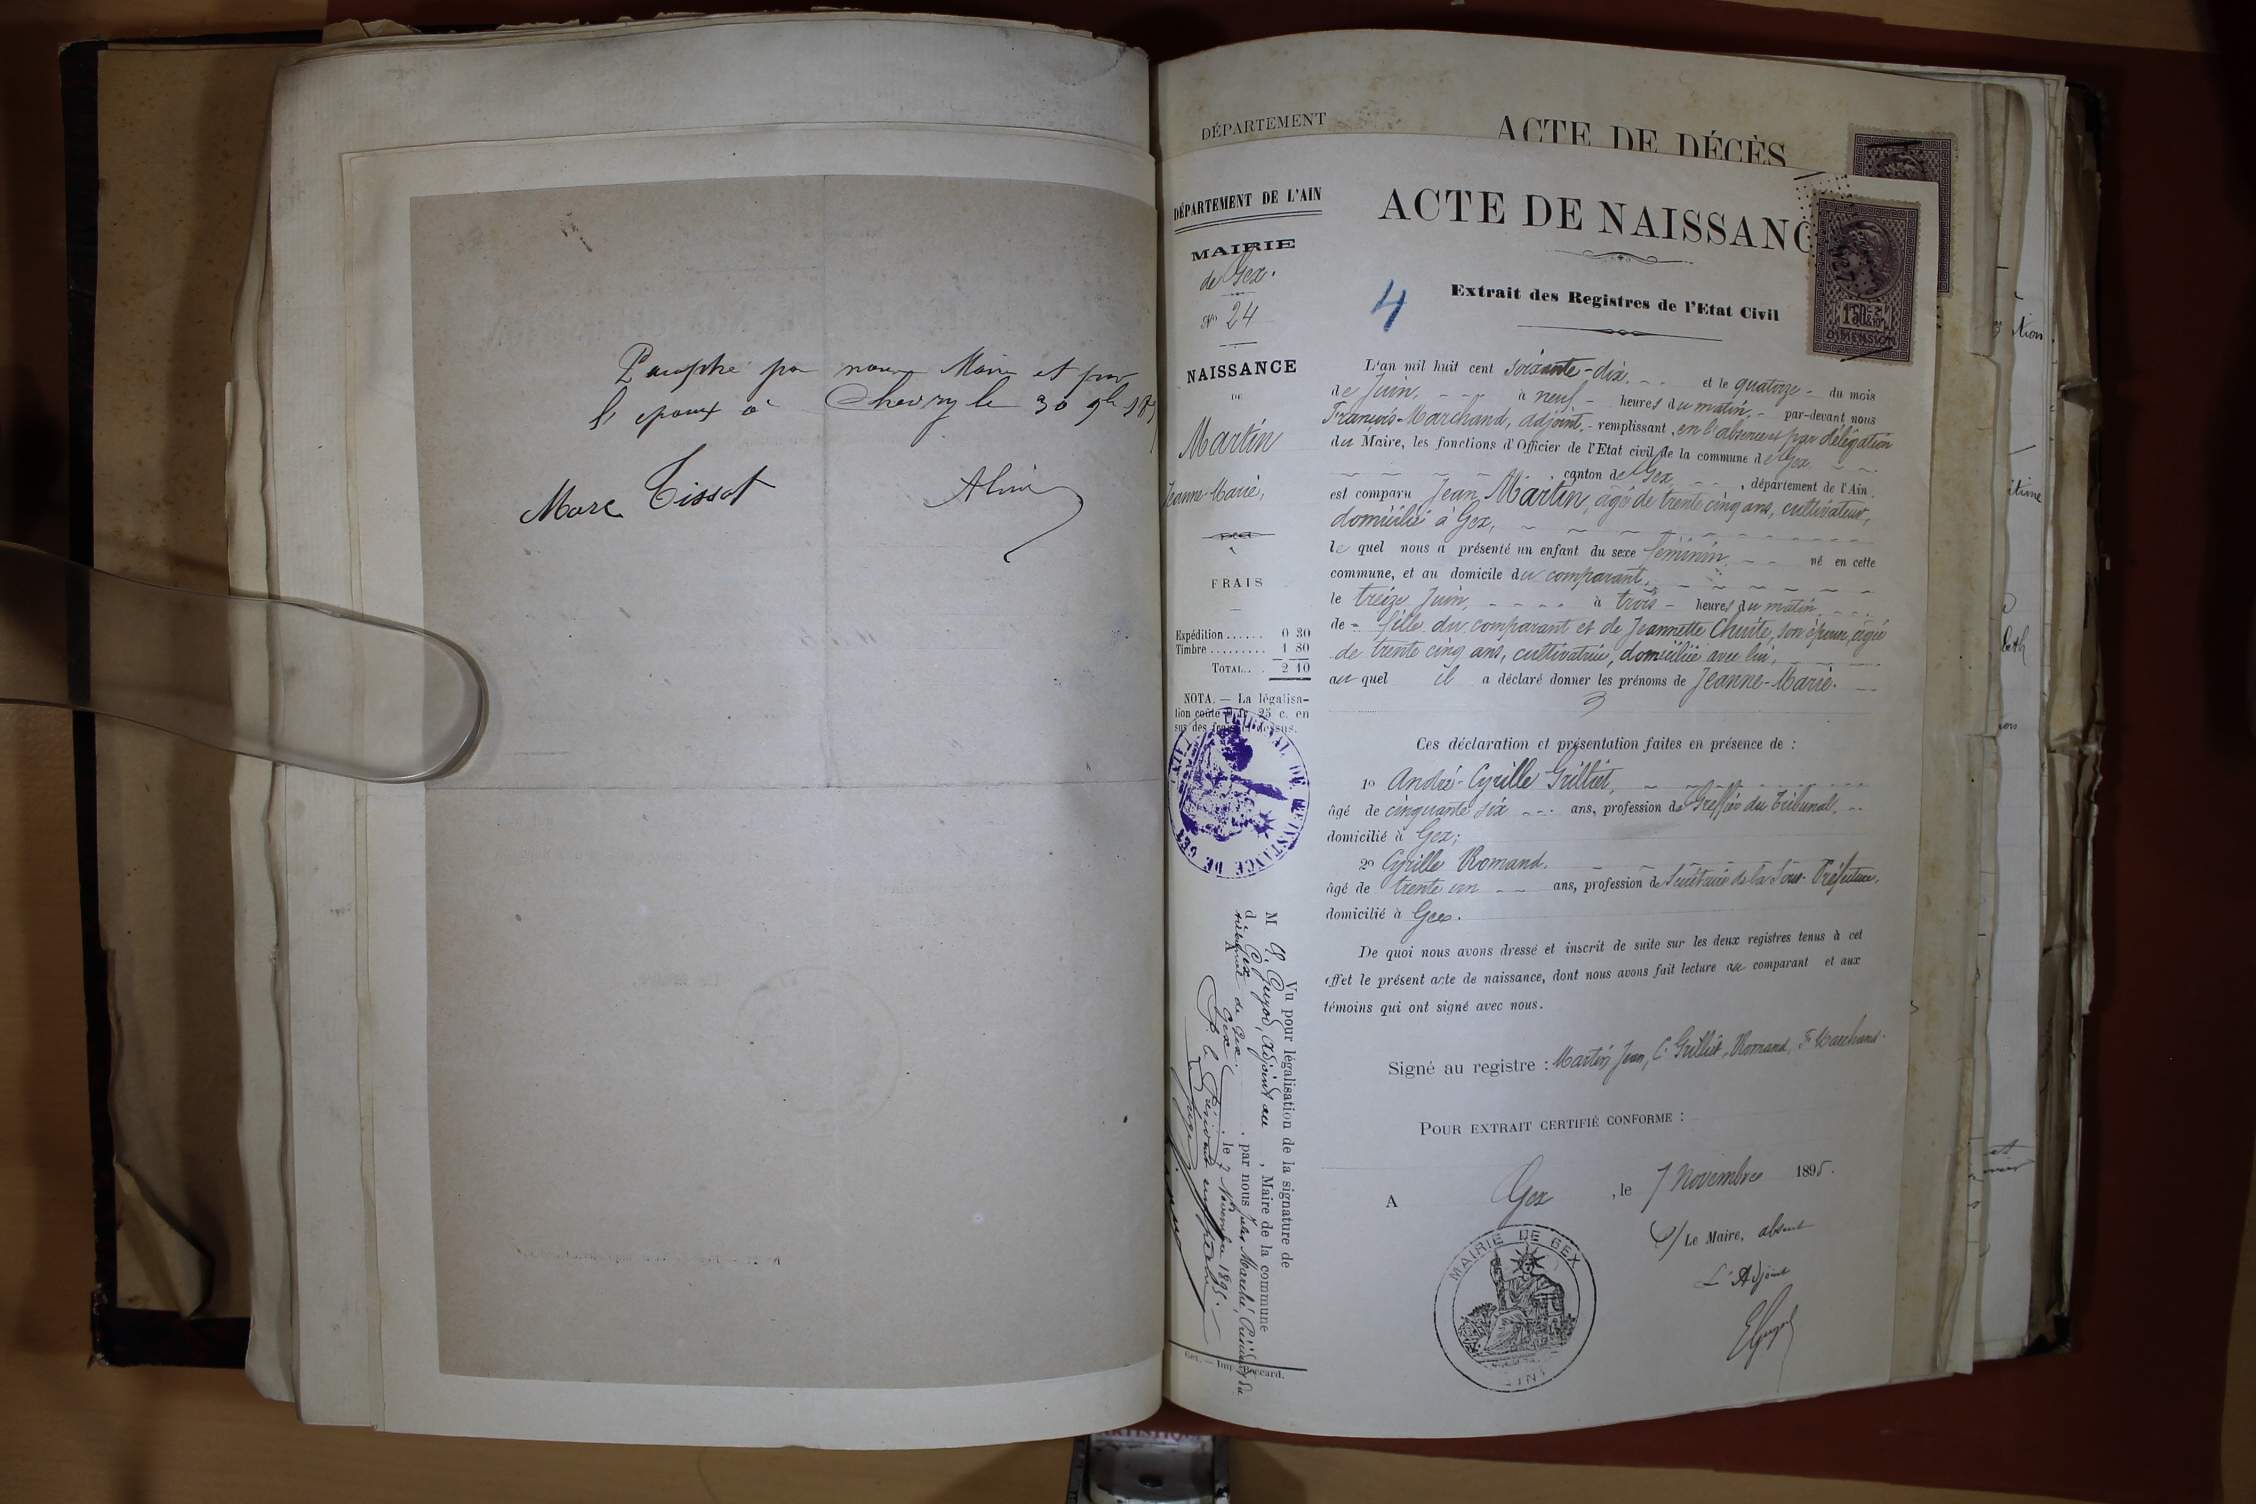 Paraphé par nous Maire et par
les epoux à Chevry le 30 9bre 18
Marc Tissot
DÉPARTEMENT
ACTE DE DÉCÈS
DÉPARTEMENT DE L'AIN
MAIRIE
de Gex.
No 24
NAISSANCE
DE
Martin
Jeanne-Marie,
FRAIS
Expédition...... 0 30
Timbre......... 1 80
TOTAL... 2 10
NOTA. — La légalisa-
tion coûte 0 fr. 25 c. en
sus des frais ci-dessus.
TRIBUNAL DE 1re INSTANCE DE GEX (AIN)
Vu pour légalisation de la signature de
M E. Guyod, Adjoint au , Maire de la commune
de Gex , par nous Jules Marché, Président du
tribunal de Gex.
A Gex , le 7 Novembre 1895.
P. le Président empêché
Gex. — Imp. Beccard.
ACTE DE NAISSANC
1f50c
DIMENSION
4
Extrait des Registres de l'Etat Civil
L'an mil huit cent soixante-dix, et le quatorze du mois
de Juin, à neuf heures du matin, par-devant nous
François-Marchand, adjoint, remplissant, en l'absence et par délégation
du Maire, les fonctions d'Officier de l'Etat civil de la commune de Gex
, canton de Gex , département de l'Ain,
est comparu Jean Martin, âgé de trente cinq ans, cultivateur,
domicilié à Gex,
le quel nous a présenté un enfant du sexe féminin, né en cette
commune, et au domicile du comparant,
le treize Juin, à trois heures du matin,
de - fille du comparant et de Jeannette Chuite, son épouse, âgée
de trente cinq ans, cultivatrice, domiciliée avec lui,
au quel il a déclaré donner les prénoms de Jeanne-Marie.
Ces déclaration et présentation faites en présence de :
1o André-Cyrille Grilliet,
âgé de cinquante six ans, profession de Greffier du Tribunal,
domicilié à Gex;
2o Cyrille Romand.
âgé de trente un ans, profession de Secrétaire de la Sous-Préfecture,
domicilié à Gex.
De quoi nous avons dressé et inscrit de suite sur les deux registres tenus à cet
effet le présent acte de naissance, dont nous avons fait lecture au comparant et aux
témoins qui ont signé avec nous.
Signé au registre : Martin Jean, C. Grilliet, Romand, F. Marchand.
POUR EXTRAIT CERTIFIÉ CONFORME :
A Gex , le 7 Novembre 1895.
P/ Le Maire, absent
L'Adjoint
EGuyod
MAIRIE DE GEX
(AIN)